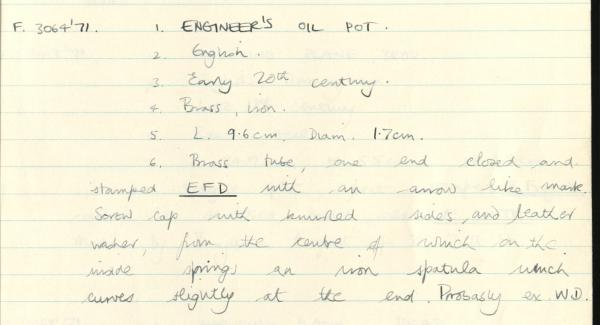 F. 3064'71. 1. ENGINEER'S OIL POT.
2. English.
3. Early 20th century.
4. Brass, iron.
5 L. 9.6cm. Diam. 1.7cm.
6. Brass tube, one end closed and
stamped EFD with an arrow like mark.
Screw cap with knurled sides, and leather
washer, from the centre of which on the
inside springs an iron spatula which
curves slightly at the end. Probably ex W.D.